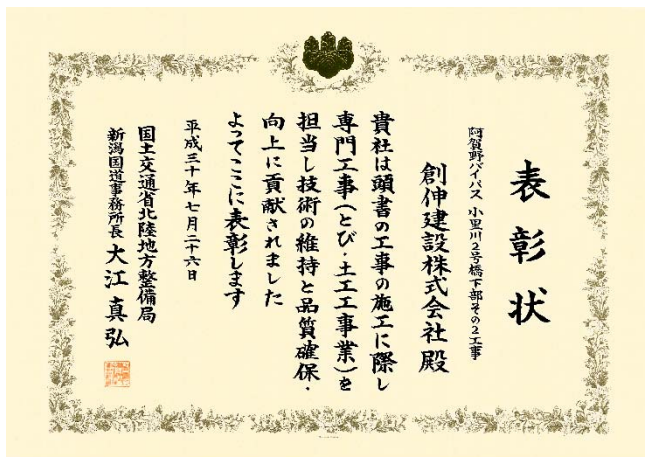 表彰状
阿賀野バイパス 小里川2号橋下部その2工事
創伸建設株式会社 殿
貴社は頭書の工事の施工に際し
専門工事(とび・土工工事業)を
担当し技術の維持と品質確保・
向上に貢献されました
よってここに表彰します
平成三十年七月二十六日
国土交通省北陸地方整備局
新潟国道事務所長 大江真弘